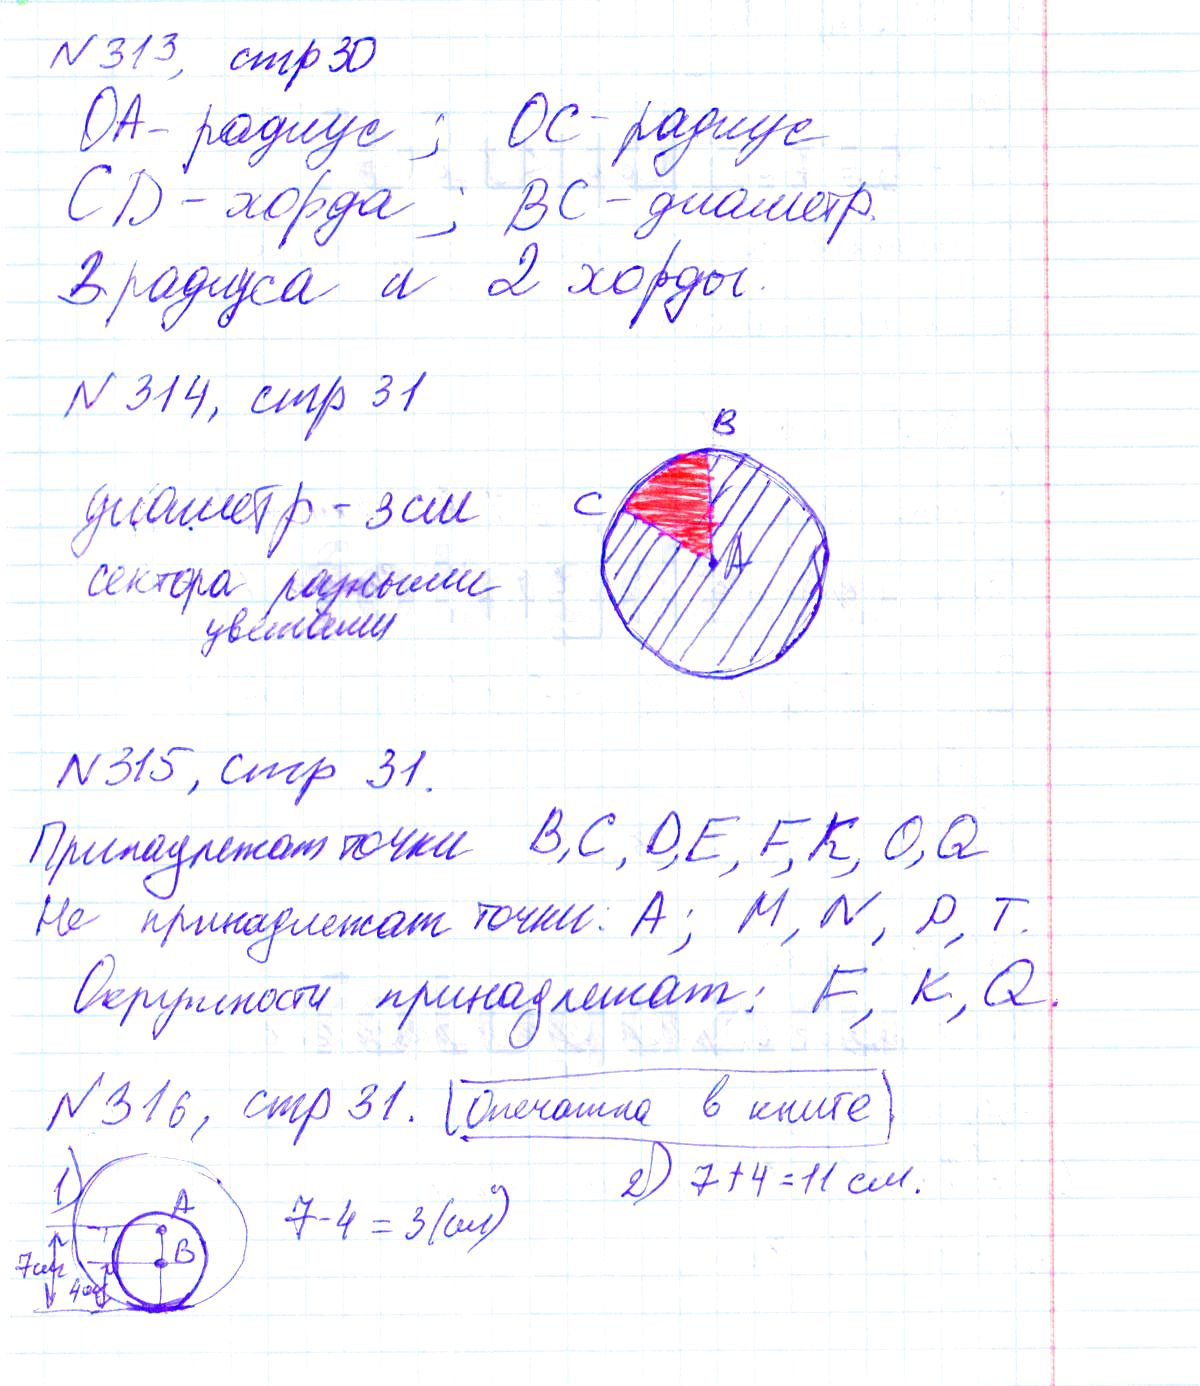 N313, стр 30
OA - радиус ; OC - радиус
CD - хорда ; BC - диаметр.
радиуса и 2 хорды.
N 314, стр 31
B
C
A
диаметр - 3 см
сектора разными
цветами
N315, стр 31.
Принадлежат точки B, C, D, E, F, K, O, Q
Не принадлежат точки: A; M, N, P, T.
Окружности принадлежат: F, K, Q.
N316, стр 31. Опечатка в книге
1)
A
B
7см
4см
7-4 = 3(см)
2) 7+4=11 см.